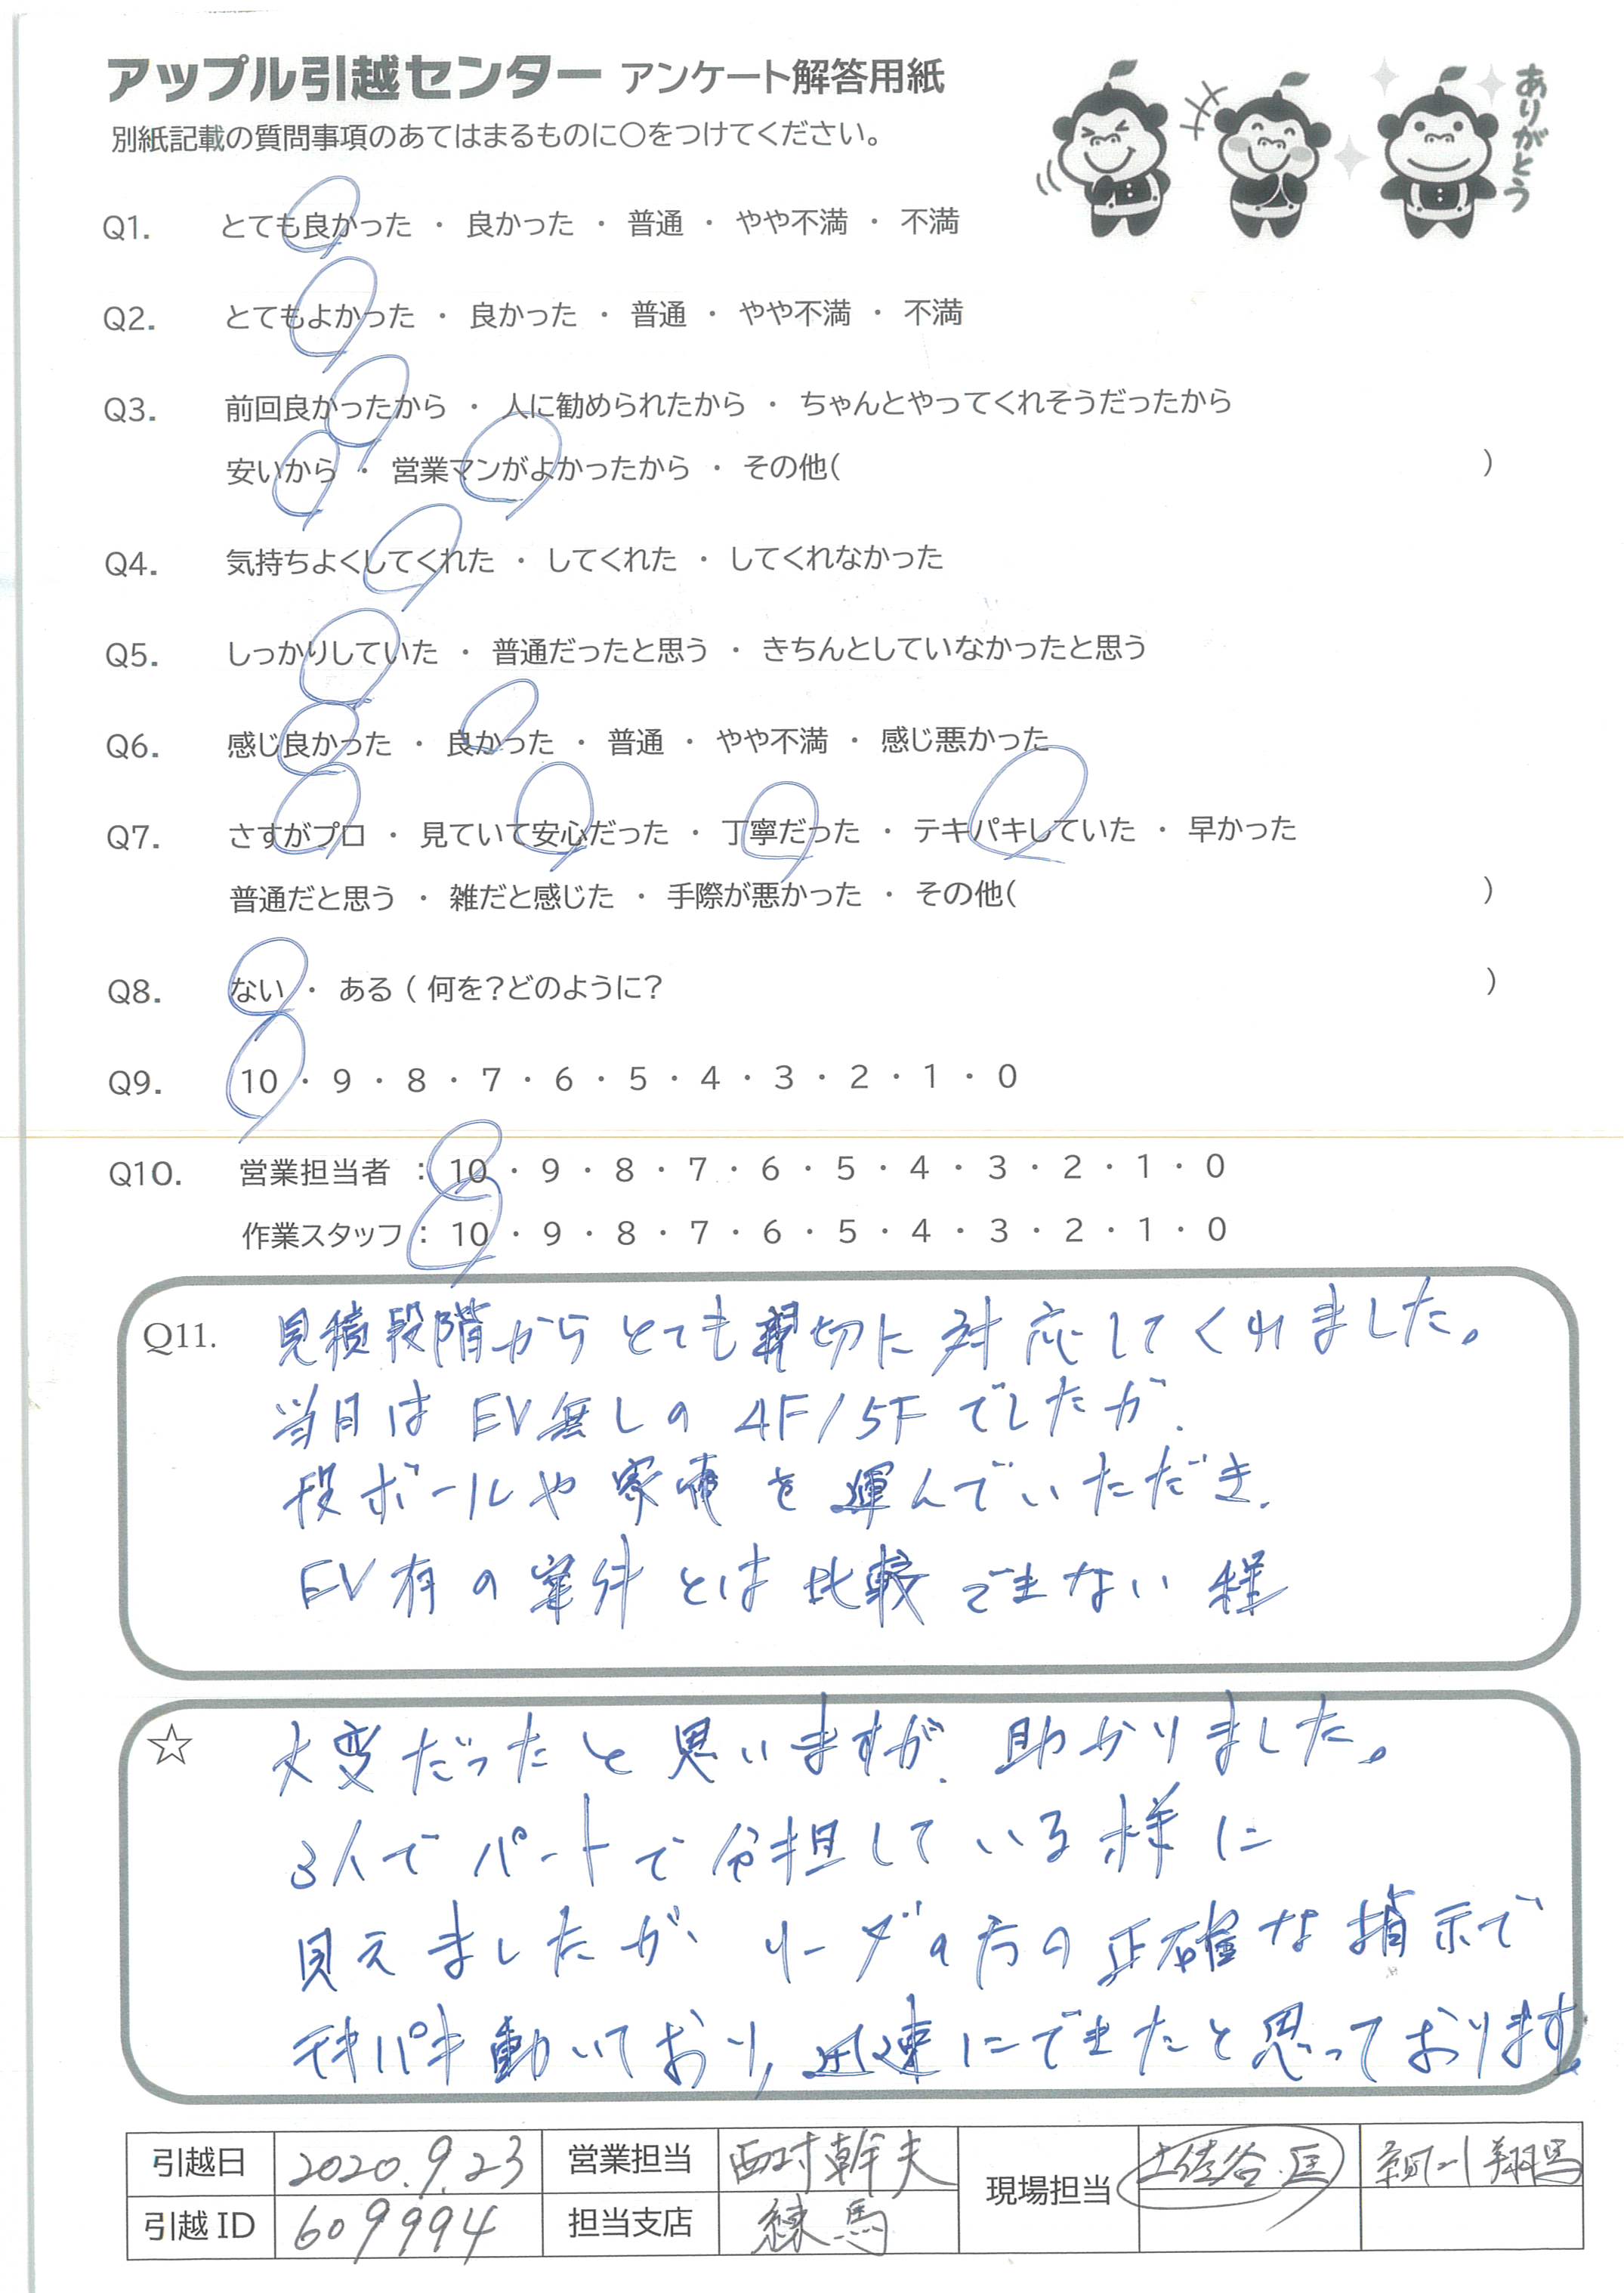 アップル引越センター アンケート解答用紙
別紙記載の質問事項のあてはまるものに〇をつけてください。
ありがとう
Q1. とても良かった ・ 良かった ・ 普通 ・ やや不満 ・ 不満
Q2. とてもよかった ・ 良かった ・ 普通 ・ やや不満 ・ 不満
Q3. 前回良かったから ・ 人に勧められたから ・ ちゃんとやってくれそうだったから
安いから ・ 営業マンがよかったから ・ その他( )
Q4. 気持ちよくしてくれた ・ してくれた ・ してくれなかった
Q5. しっかりしていた ・ 普通だったと思う ・ きちんとしていなかったと思う
Q6. 感じ良かった ・ 良かった ・ 普通 ・ やや不満 ・ 感じ悪かった
Q7. さすがプロ ・ 見ていて安心だった ・ 丁寧だった ・ テキパキしていた ・ 早かった
普通だと思う ・ 雑だと感じた ・ 手際が悪かった ・ その他( )
Q8. ない ・ ある ( 何を?どのように? )
Q9. 10 ・ 9 ・ 8 ・ 7 ・ 6 ・ 5 ・ 4 ・ 3 ・ 2 ・ 1 ・ 0
Q10. 営業担当者 : 10 ・ 9 ・ 8 ・ 7 ・ 6 ・ 5 ・ 4 ・ 3 ・ 2 ・ 1 ・ 0
作業スタッフ : 10 ・ 9 ・ 8 ・ 7 ・ 6 ・ 5 ・ 4 ・ 3 ・ 2 ・ 1 ・ 0
Q11. 見積段階からとても親切に対応してくれました。
当日はEV無しの4F/5Fでしたが、
段ボールや家電を運んでいただき、
EV有の案件とは比較できない程
☆ 大変だったと思いますが、助かりました。
3人でパートで分担している様に
見えましたが、リーダの方の正確な指示で
テキパキ動いており、迅速にできたと思っております。
引越日 2020.9.23 営業担当 西村幹夫 現場担当 土佐谷 匡 翔馬
引越ID 609994 担当支店 練馬